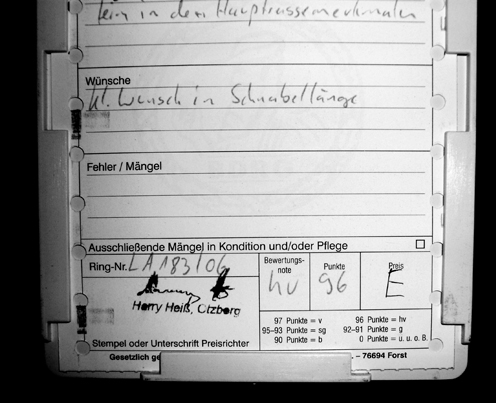 fein in den Hauptrassemerkmalen
Wünsche
kl. Wunsch in Schnabellänge
Fehler / Mängel
Ausschließende Mängel in Kondition und/oder Pflege
Ring-Nr. LA 183/06
Bewertungsnote
hv
Punkte
96
Preis
E
Harry Heiß, Otzberg
Stempel oder Unterschrift Preisrichter
97 Punkte = v 96 Punkte = hv
95–93 Punkte = sg 92–91 Punkte = g
90 Punkte = b 0 Punkte = u. u. o. B.
Gesetzlich ge
– 76694 Forst